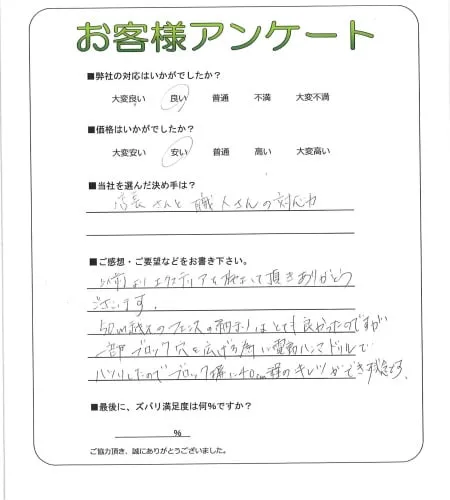 お客様アンケート
■弊社の対応はいかがでしたか？
大変良い 良い 普通 不満 大変不満
■価格はいかがでしたか？
大変安い 安い 普通 高い 大変高い
■当社を選んだ決め手は？
店長さんと職人さんの対応力
■ご感想・ご要望などをお書き下さい。
以前よりエクステリアを施工して頂きありがとう
ございます。
50m越えのフェンスの納まりはとても良かったのですが
一部ブロック穴を広げる為に電動ハンマドリルで
ハツリしたのでブロック塀に40cm程のキレツができ残念
■最後に、ズバリ満足度は何％ですか？
％
ご協力頂き、誠にありがとうございました。